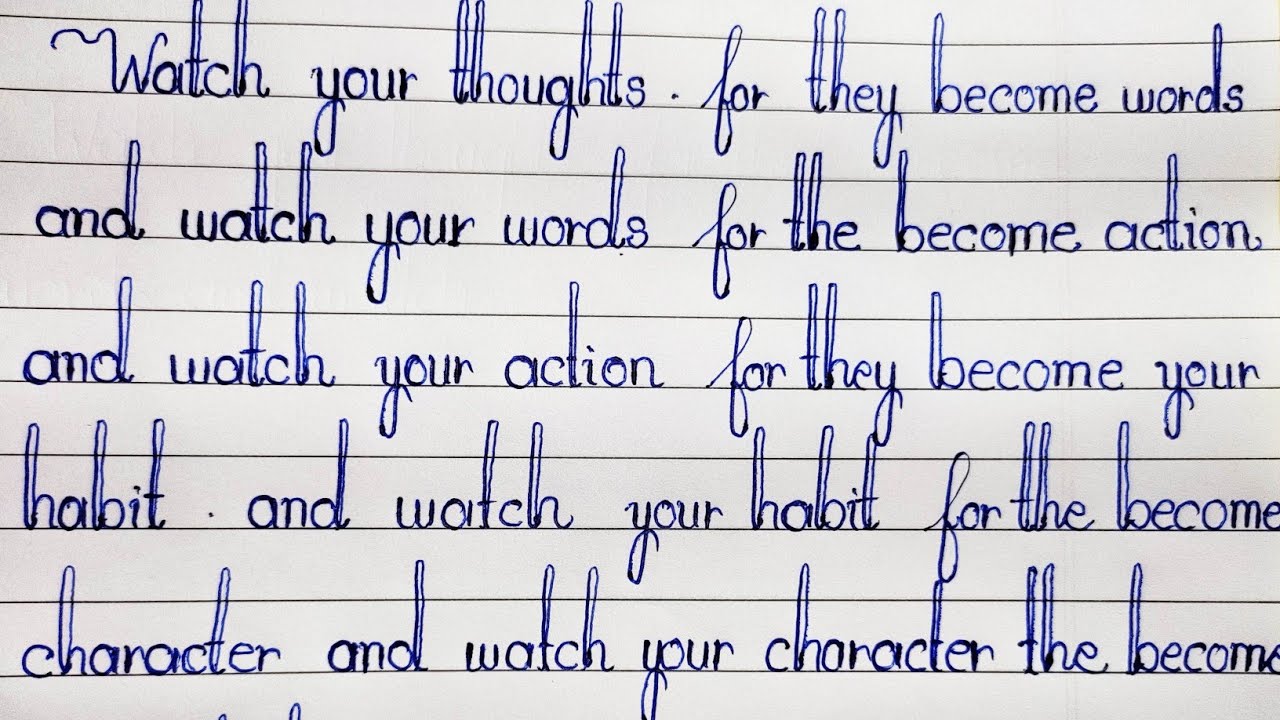 Watch your thoughts. for they become words
and watch your words for the become action
and watch your action for they become your
habit. and watch your habit for the become
character and watch your character the become